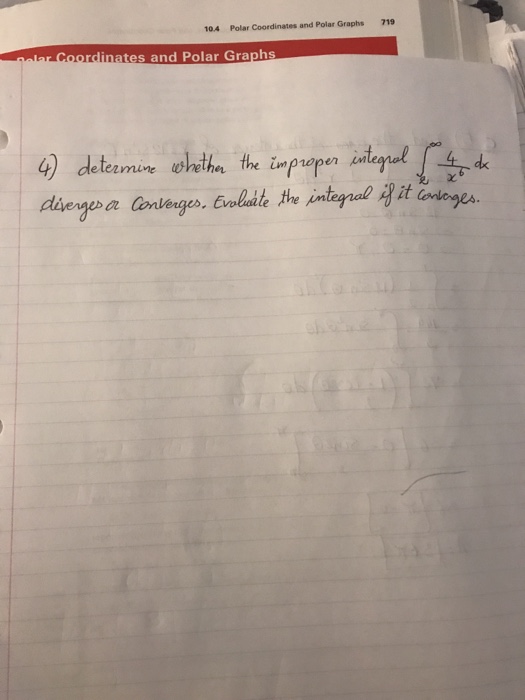 10.4 Polar Coordinates and Polar Graphs 719
olar Coordinates and Polar Graphs
4) determine whether the improper integral ∫₂^∞ 4/x⁶ dx
diverges or Converges. Evaluate the integral if it Converges.